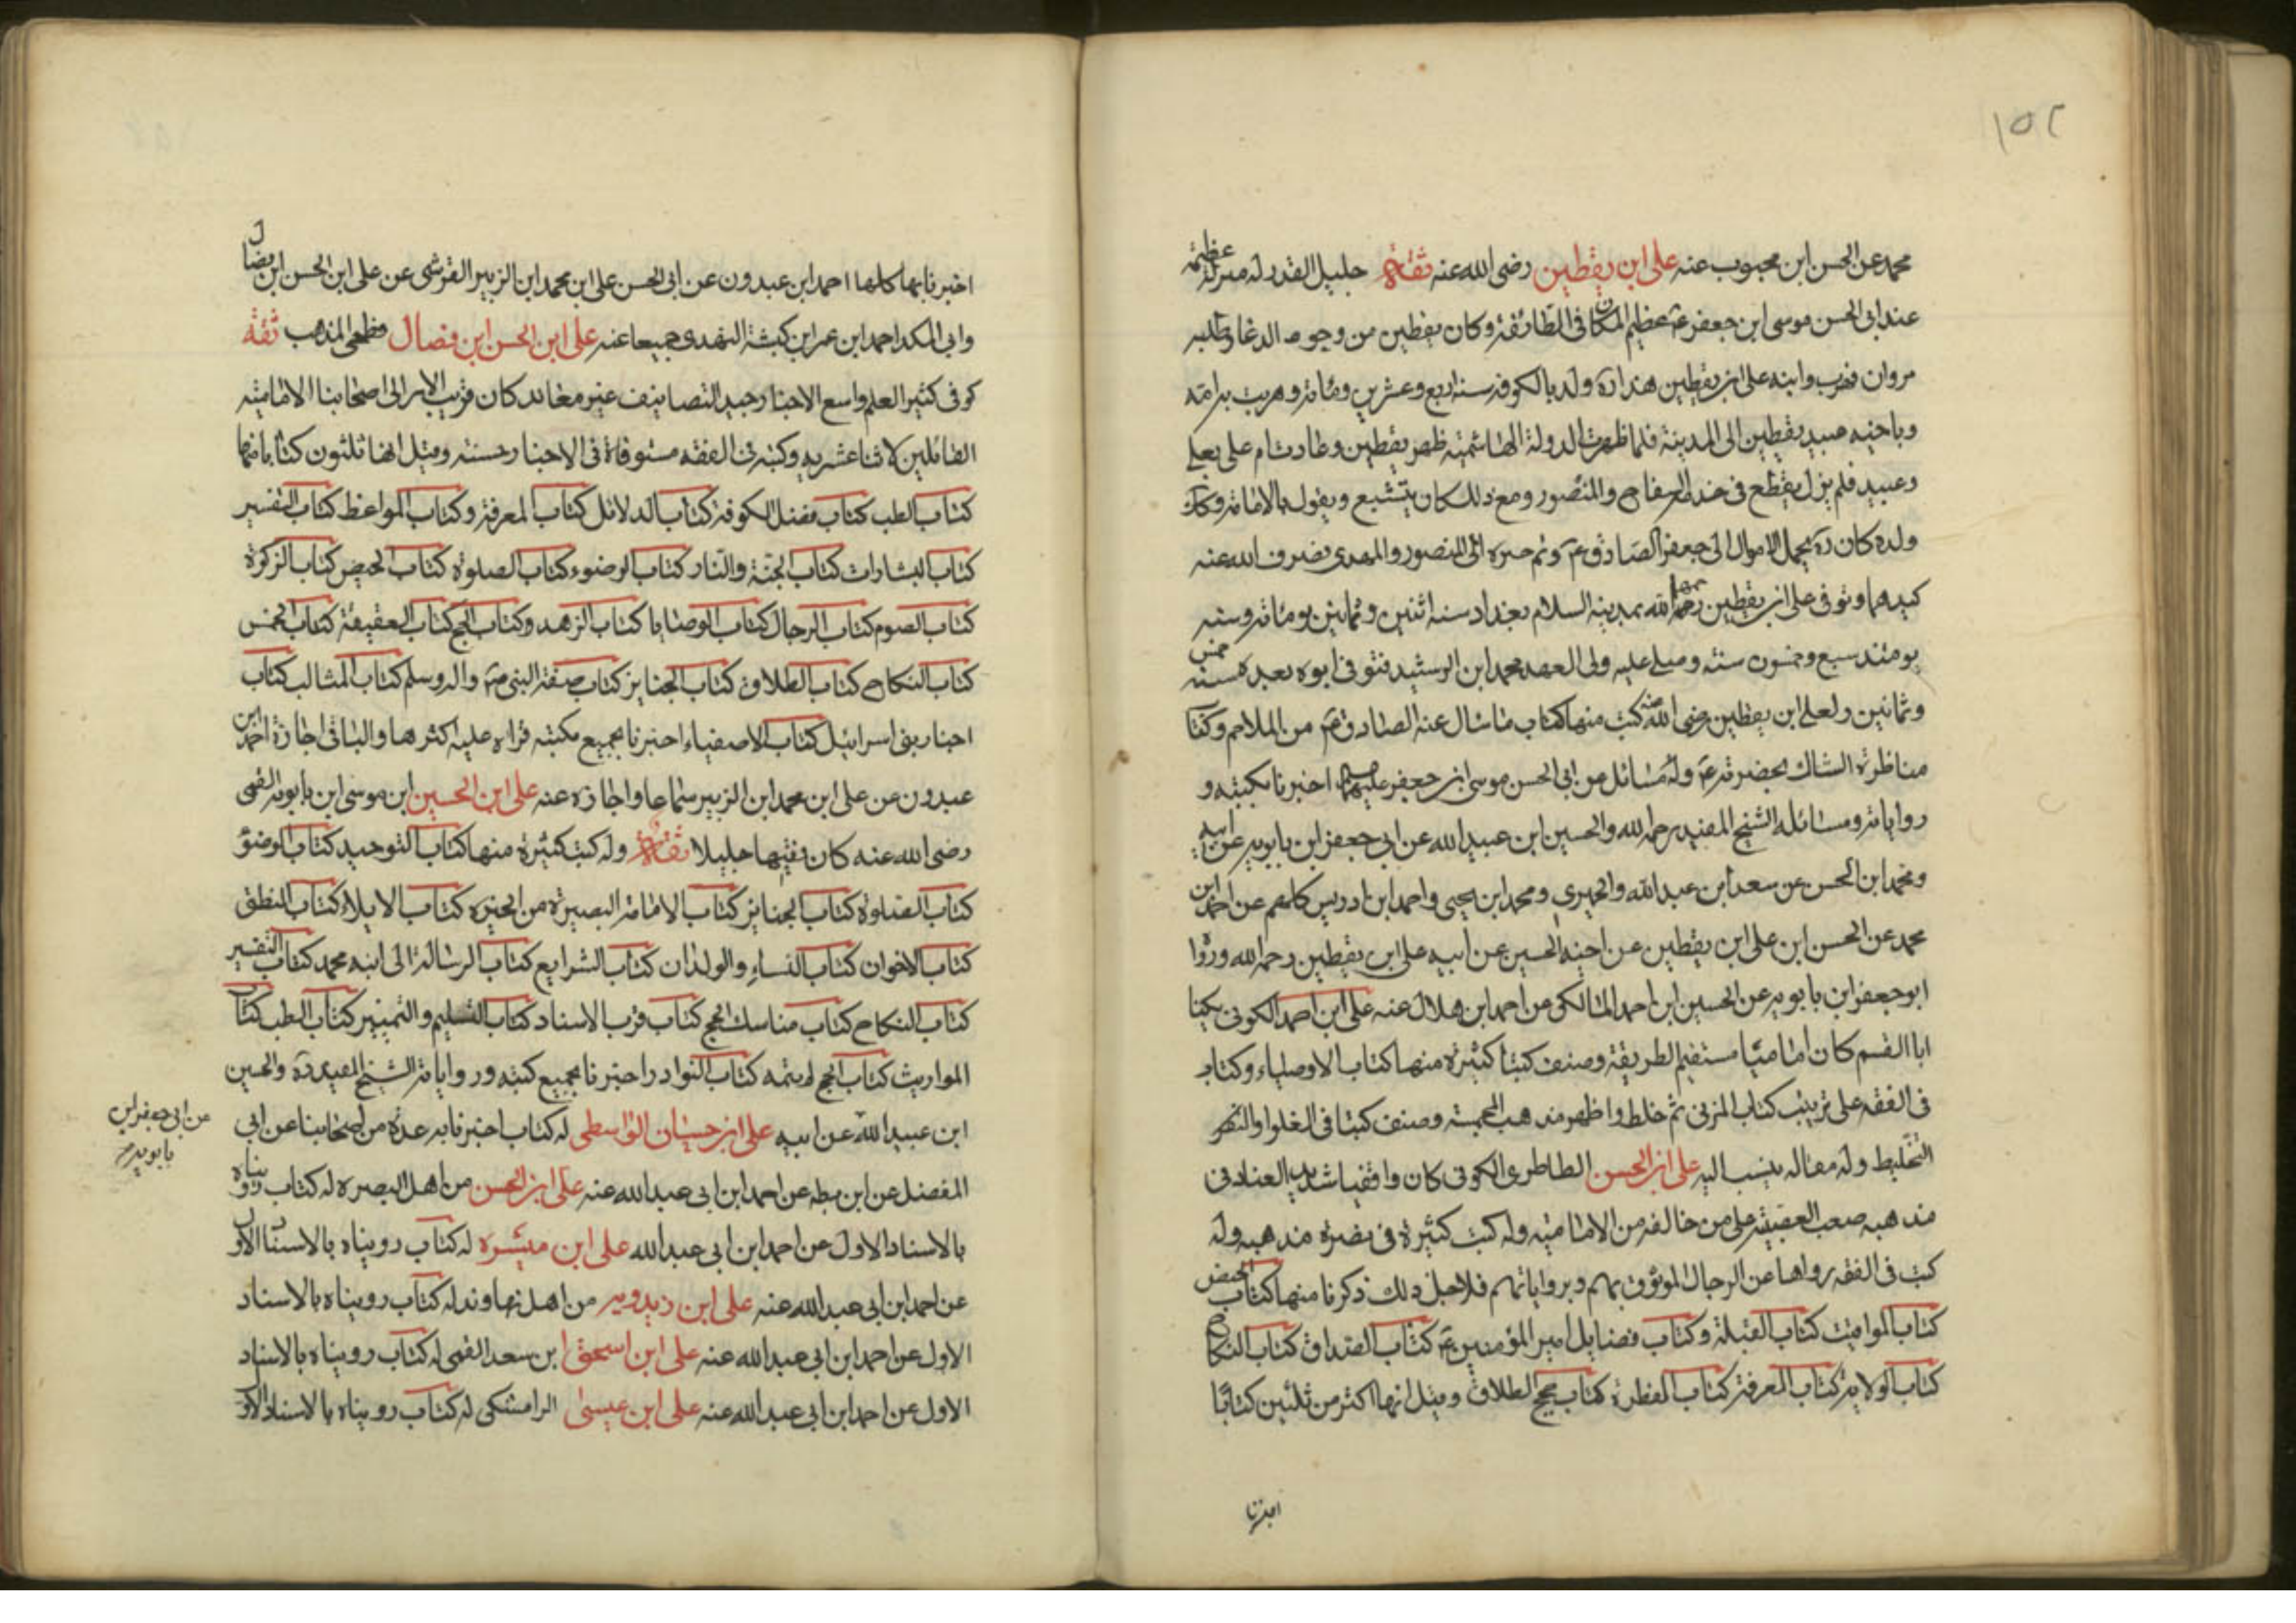 ١٥٢
محمد عن الحسن ابن محبوب عنه على ابن يقطين رضى الله عنه ثقة جليل القدر له منزلة عظيمة
عند ابى الحسن موسى ابن جعفر عم عظيم المكان فى الطائفة وكان يقطين من وجوه الدعاة وطلبه
مروان فهرب وابنه على ابن يقطين هذا ره ولد بالكوفة سنة اربع وعشرين ومائة وهربت به امه
وباخيه عبيد يقطين الى المدينة فلما ظهرت الدولة الهاشمية ظهر يقطين وعادت ام على بعلى
وعبيد فلم يزل يقطين فى خدمة السفاح والمنصور ومع ذلك كان يتشيع ويقول بالامامة وكك
ولده كان ره يحمل الاموال الى جعفر الصادق عم ونم خبره الى المنصور والمهدى فصرف الله عنه
كيدهما وتوفى على ابن يقطين رحمه الله بمدينة السلام بغداد سنة اثنين وثمانين ومائة وسنه
يومئذ سبع وخمسون سنة وصلى عليه ولى العهد محمد ابن الرشيد فتوفى ابوه بعده سنة خمس
وثمانين ولعلى ابن يقطين رضى الله عنه كتب منها كتاب ما سال عنه الصادق عم من الملاحم وكتا
مناظرة الشاك بحضرته عم وله مسائل من ابى الحسن موسى ابن جعفر عليهم اخبرنا بكتبه و
رواياته ومسائله الشيخ المفيد رحمه الله والحسين ابن عبيد الله عن ابى جعفر ابن بابويه عن ابيه
ومحمد ابن الحسن عن سعد ابن عبد الله والحميرى ومحمد ابن يحيى واحمد ابن ادريس كلهم عن احمد ابن
محمد عن الحسن ابن على ابن يقطين عن اخيه الحسين عن ابيه على ابن يقطين رحمه الله ورواه
ابو جعفر ابن بابويه عن الحسين ابن احمد المالكى عن احمد ابن هلال عنه على ابن احمد الكوفى يكنا
ابا القسم كان اماميا مستقيم الطريقة وصنف كتبا كثيرة منها كتاب الاوصياء وكتاب
فى الفقه على ترتيب كتاب المزنى ثم خلط واظهر مذهب المخمسة وصنف كتبا فى الغلو او
التخليط وله مقاله ينسب اليه على ابن الحسن الطاطرى الكوفى كان واقفيا شديد العناد فى
مذهبه صعب العصبية على من خالفه من الامامية وله كتب كثيرة فى نصرة مذهبه وله
كتب فى الفقه رواها عن الرجال الموثوق بهم وبرواياتهم فلاجل ذلك ذكرنا منها كتاب الحيض
كتاب المواقيت كتاب القبلة وكتاب فضايل امير المؤمنين عم كتاب الصداق كتاب النكاح
كتاب الولاية كتاب المعرفة كتاب الفطرة كتاب حجج الطلاق وميل انها اكثر من ثلثين كتابا
اخبرنا
اخبرنا بها كلها احمد ابن عبدون عن ابى الحسن على ابن محمد ابن الزبير القرشى عن على ابن الحسن ابن فضال
وابى الملك احمد ابن عمر ابن كبشة النهدى جميعا عنه على ابن الحسن ابن فضال فطحى المذهب ثقة
كوفى كثير العلم واسع الاخبار جيد التصانيف غير معاند كان قريب الامر الى اصحابنا الامامية
القائلين بالاثنا عشريه وكتبه فى الفقه مستوفاة فى الاخبار حسنة وميل انها ثلثون كتابا منها
كتاب الطب كتاب فضل الكوفة كتاب الدلائل كتاب المعرفة وكتاب المواعظ كتاب التفسير
كتاب البشارات كتاب الجنة والنار كتاب الوضوء كتاب الصلوة كتاب الحيض كتاب الزكوة
كتاب الصوم كتاب الرجال كتاب الوصايا كتاب الزهد وكتاب الحج كتاب العقيقة كتاب الخمس
كتاب النكاح كتاب الطلاق كتاب الجنايز كتاب صفة النبى صم واله وسلم كتاب المثالب كتاب
اخبار بنى اسرائيل كتاب الاصفياء اخبرنا بجميع كتبه قراه عليه اكثرها والباقى اجازة احمد ابن
عبدون عن على ابن محمد ابن الزبير سماعا واجازه عنه على ابن الحسين ابن موسى ابن بابويه القمى
رضى الله عنه كان فقيها جليلا ثقة وله كتب كثيرة منها كتاب التوحيد كتاب الوضوء
كتاب الصلوة كتاب الجنايز كتاب الامامة البصيرة من الحيرة كتاب الايلاء كتاب المنطق
كتاب الاخوان كتاب النساء والولدان كتاب الشرايع كتاب الرسالة الى ابنه محمد كتاب التفسير
كتاب النكاح كتاب مناسك الحج كتاب قرب الاسناد كتاب التسليم والتمييز كتاب الطب كتاب
المواريث كتاب الحج لم يتمه كتاب النوادر اخبرنا بجميع كتبه ورواياته الشيخ المفيد ره والحسين
ابن عبيد الله عن ابيه على ابن حسان الواسطى له كتاب اخبرنا به عدة من اصحابنا عن ابى
عن ابى جعفر ابن
بابويه
المفضل عن ابن بطه عن احمد ابن ابى عبد الله عنه على ابن الحسن من اهل البصره له كتاب رويناه
بالاسناد الاول عن احمد ابن ابى عبد الله على ابن ميسره له كتاب رويناه بالاسناد الاول
عن احمد ابن ابى عبد الله عنه على ابن زيدويه من اهل نهاوند له كتاب رويناه بالاسناد
الاول عن احمد ابن ابى عبد الله عنه على ابن اسحق ابن سعد القمى له كتاب رويناه بالاسناد
الاول عن احمد ابن ابى عبد الله عنه على ابن عيسى الرامشكى له كتاب رويناه بالاسناد الاول